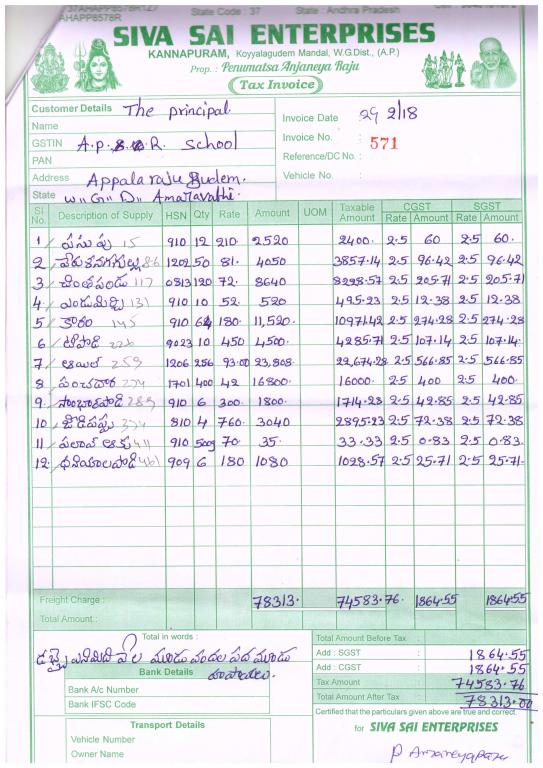 37AHAPP8578R1Z7 State Code : 37 State : Andhra Pradesh
AHAPP8578R
SIVA SAI ENTERPRISES
KANNAPURAM, Koyyalagudem Mandal, W.G.Dist., (A.P.)
Prop. : Penumatsa Anjaneya Raju
Tax Invoice
Customer Details The principal
Name
GSTIN A.p. R. School
PAN
Address Appala raju Budem.
State W,, G,, D,, Amaravathi.
Invoice Date : 29 2/18
Invoice No. : 571
Reference/DC No. :
Vehicle No. :
Sl No. Description of Supply HSN Qty Rate Amount UOM Taxable Amount CGST Rate Amount SGST Rate Amount
1 పసుపు 15 910 12 210 2520 2400. 2.5 60 2.5 60.
2 వేరుశనగగుళ్ళు 86 1202 50 81. 4050 3857.14 2.5 96.42 2.5 96.42
3 చింతపండు 117 0813 120 72. 8640 8228.57 2.5 205.71 2.5 205.71
4 ఎండుమిర్చి 131 910 10 52. 520 495.23 2.5 12.38 2.5 12.38
5 కారం 145 910 64 180. 11,520 10971.42 2.5 274.28 2.5 274.28
6 టీపొడి 226 9023 10 450 4500. 4285.71 2.5 107.14 2.5 107.14.
7 ఆయిల్ 259 1206 256 93.00 23,808. 22,674.28 2.5 566.85 2.5 566.85
8 పంచదార 274 1701 400 42 16800. 16000. 2.5 400 2.5 400.
9 సాంబారుపొడి 289 910 6 300. 1800. 1714.28 2.5 42.85 2.5 42.85
10 జీడిపప్పు 810 4 760. 3040 2895.23 2.5 72.38 2.5 72.38
11 పలావ్ ఆకు 411 910 500g 70. 35. 33.33 2.5 0.83 2.5 0.83.
12. ధనియాలపొడి 461 909 6 180 1080 1028.57 2.5 25.71 2.5 25.71.
Freight Charge : 78313. 74583.76. 1864.55 1864.55
Total Amount :
Total in words :
డబ్బై ఎనిమిది వేల మూడు వందల పద మూడు
రూపాయలు.
Bank Details
Bank A/c Number
Bank IFSC Code
Transport Details
Vehicle Number
Owner Name
Total Amount Before Tax :
Add : SGST 1864.55
Add : CGST 1864.55
Tax Amount 74583.76
Total Amount After Tax : 78313.00
Certified that the particulars given above are true and correct.
for SIVA SAI ENTERPRISES
P Anjaneyaraju